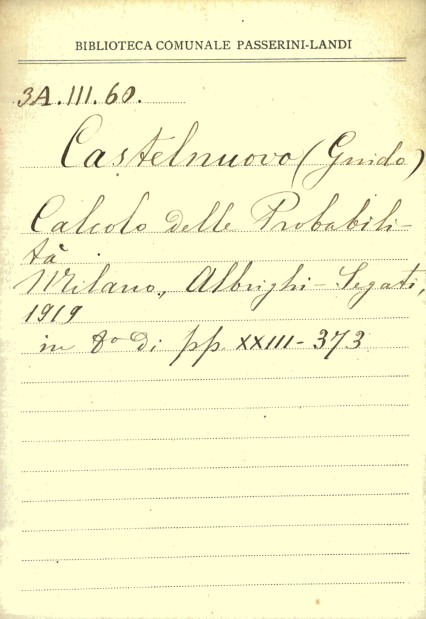 BIBLIOTECA COMUNALE PASSERINI-LANDI
3A.III.60.
Castelnuovo (Guido)
Calcolo delle Probabili-
tà
Milano, Albrighi-Segati,
1919
in 8° di pp. XXIII-373